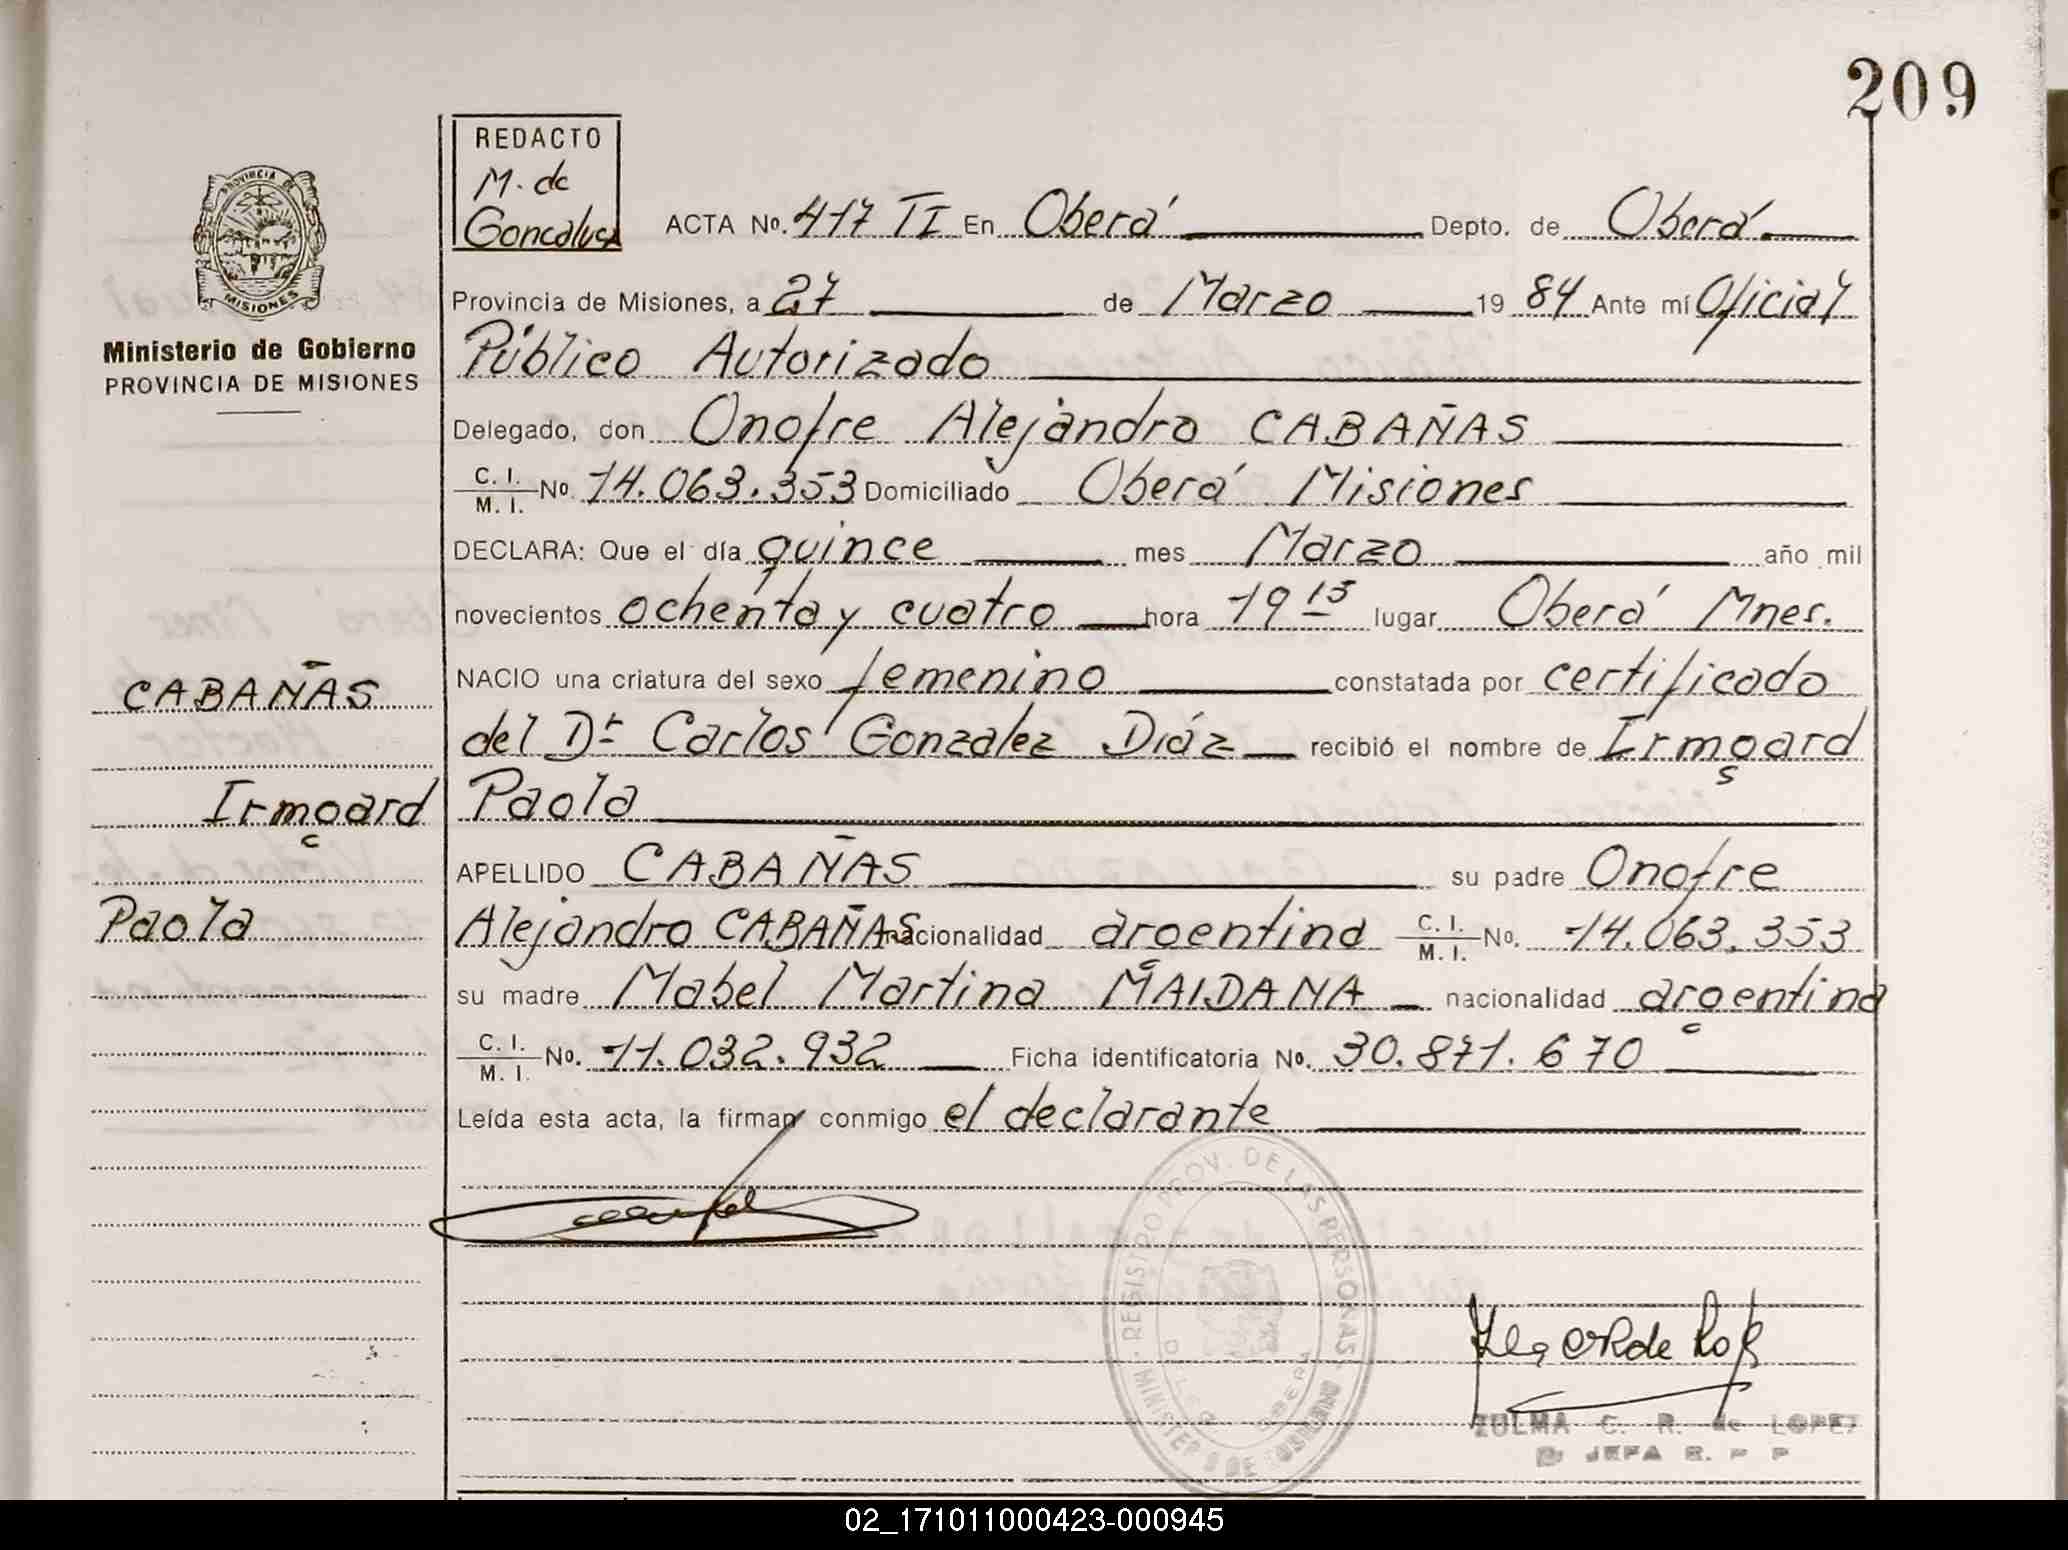 209
REDACTO
M. de
Goncalves
PROVINCIA DE
MISIONES
Ministerio de Gobierno
PROVINCIA DE MISIONES
ACTA No. 417 TI En Oberá Depto. de Oberá
Provincia de Misiones, a 27 de Marzo 19 84 Ante mí Oficial
Público Autorizado
Delegado, don Onofre Alejandro CABAÑAS
C. I. / M. I. No. 14.063.353 Domiciliado Oberá Misiones
DECLARA: Que el día quince mes Marzo año mil
novecientos ochenta y cuatro hora 19 15 lugar Oberá Mnes.
NACIO una criatura del sexo femenino constatada por certificado
del Dr Carlos Gonzalez Diáz recibió el nombre de Irmgard
Paola
CABAÑAS
Irmgard
Paola
APELLIDO CABAÑAS su padre Onofre
Alejandro CABAÑAS nacionalidad argentina C. I. / M. I. No. 14.063.353
su madre Mabel Martina MAIDANA nacionalidad argentina
C. I. / M. I. No. 11.032.932 Ficha identificatoria No. 30.871.670
Leída esta acta, la firman conmigo el declarante
REGISTRO PROV. DE LAS PERSONAS
OBERA
ZULMA C. R. de LOPEZ
JEFA R. P P
02_171011000423-000945